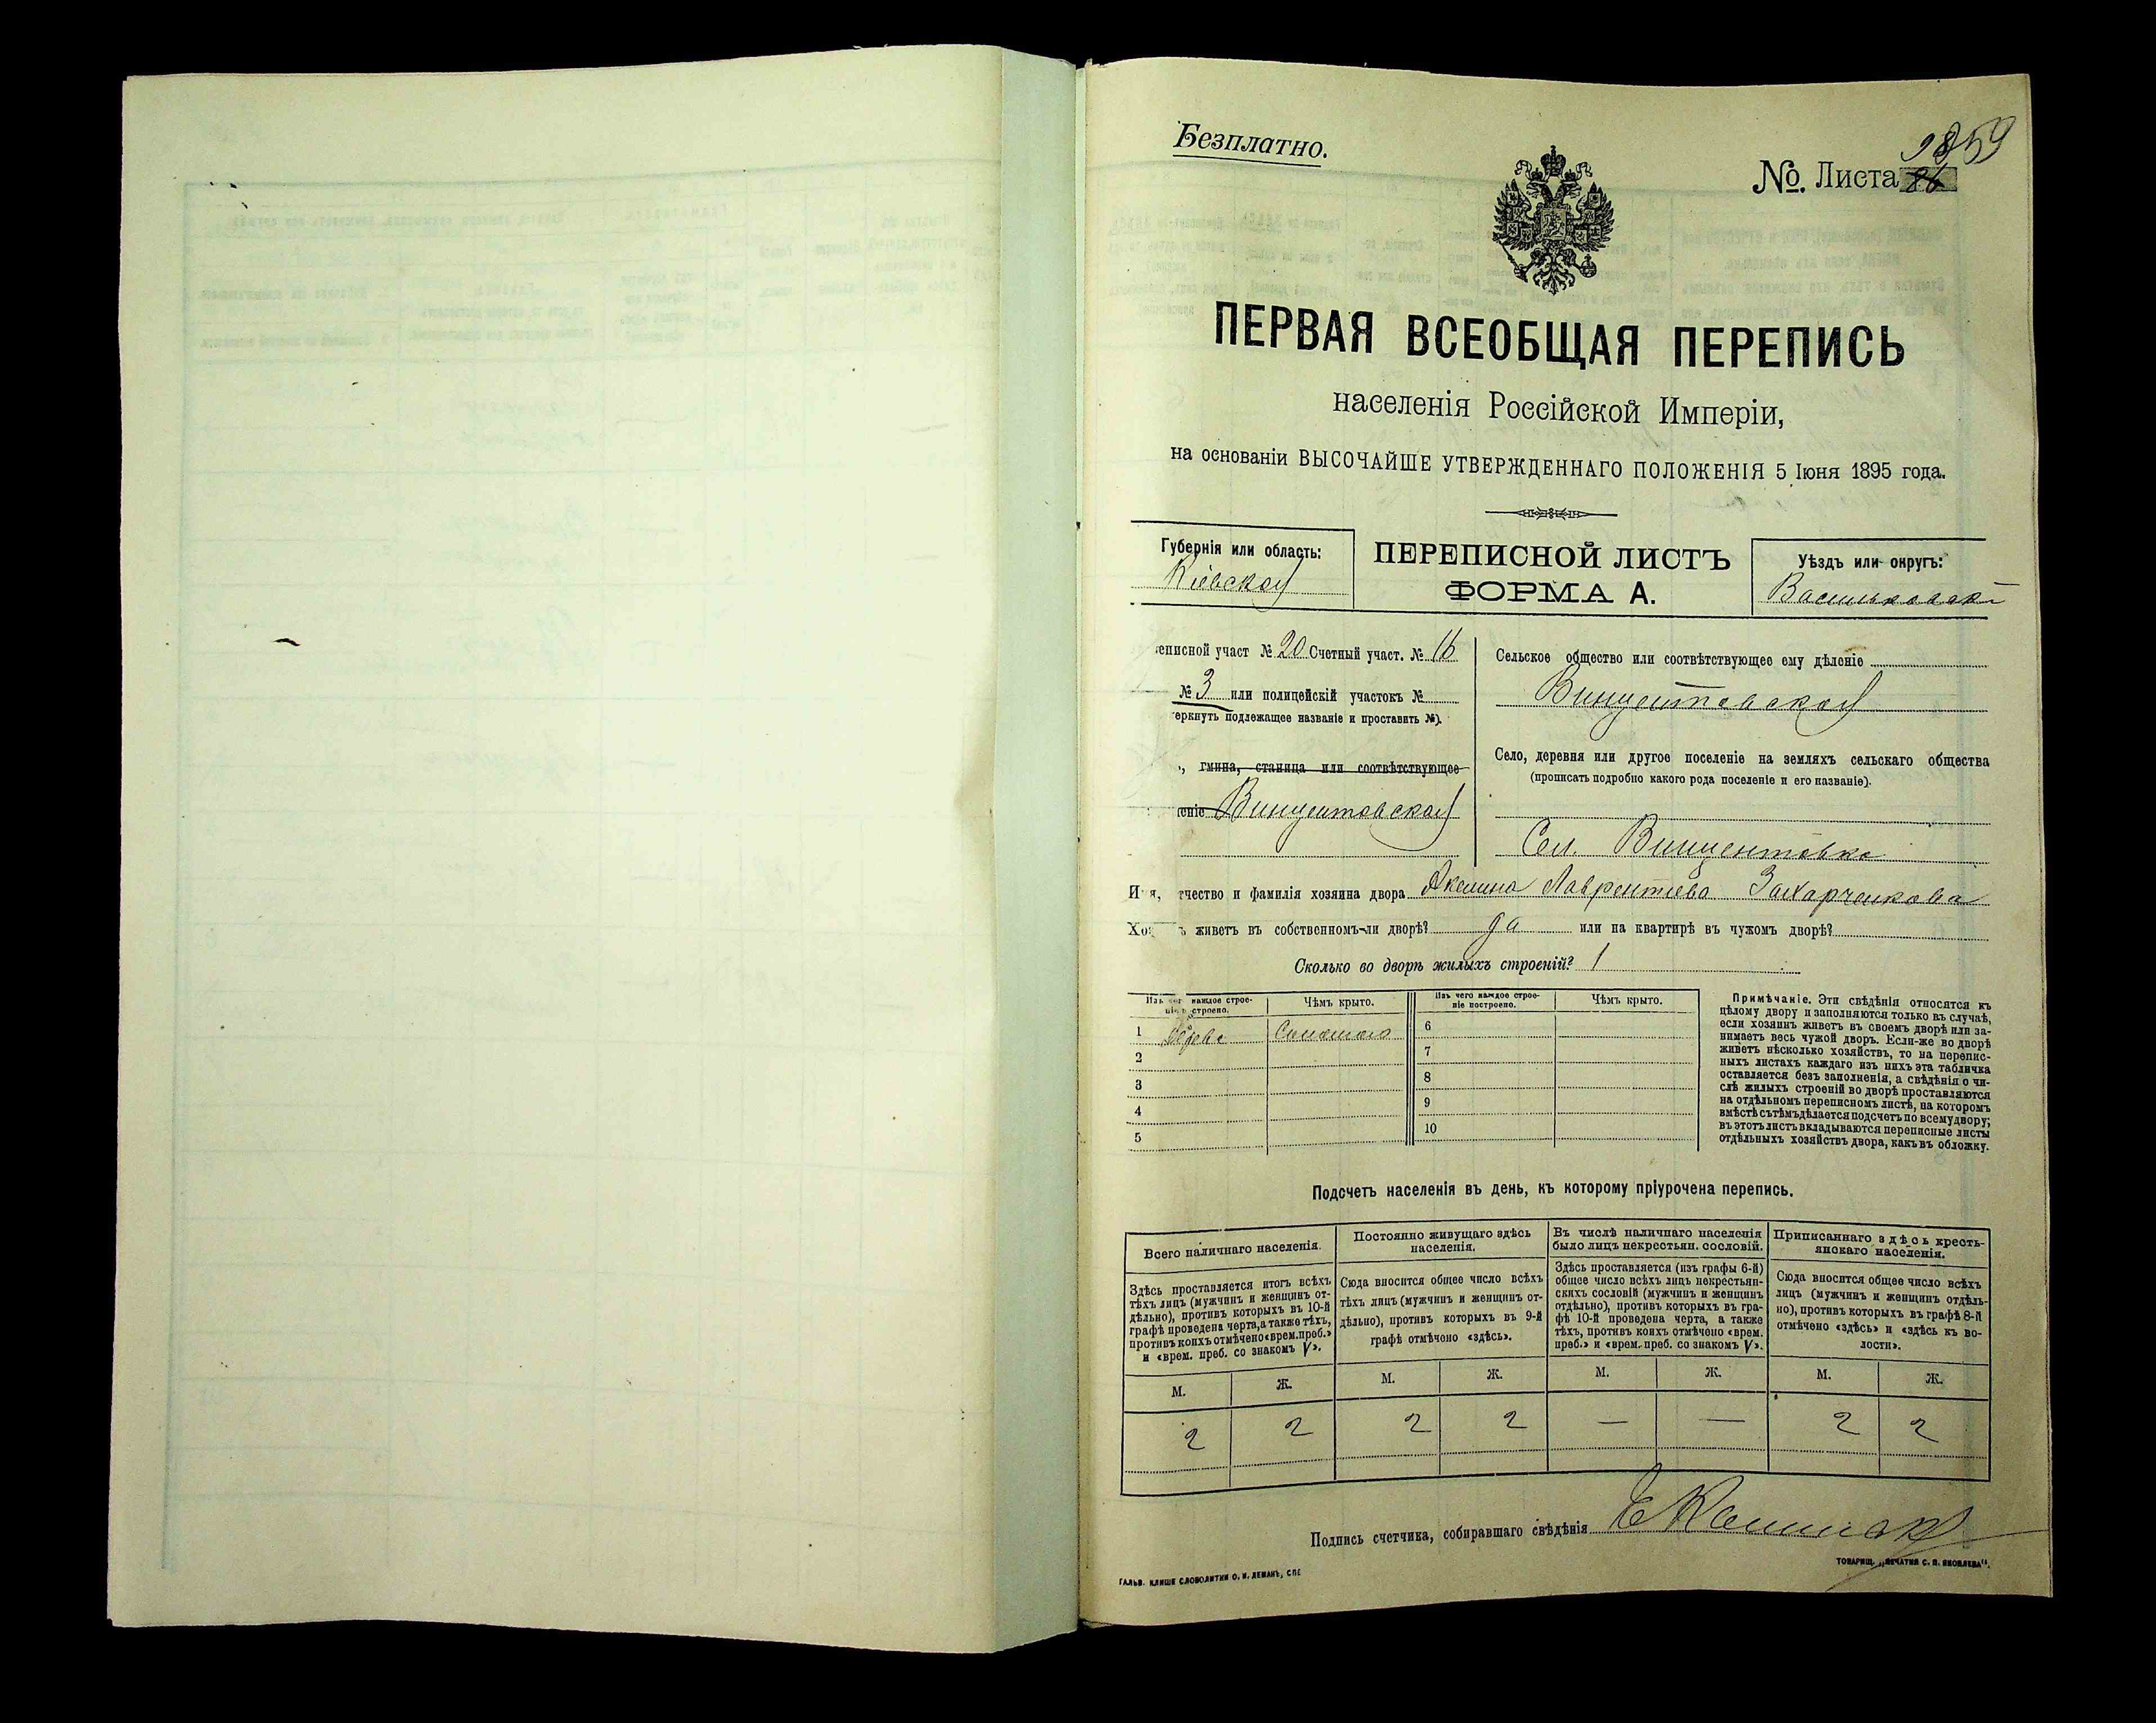 Безплатно.
№. Листа
ПЕРВАЯ ВСЕОБЩАЯ ПЕРЕПИСЬ
населенія Россійской Имперіи,
на основаніи ВЫСОЧАЙШЕ УТВЕРЖДЕННАГО ПОЛОЖЕНІЯ 5 Іюня 1895 года.
Губернія или область:
Кіевская
ПЕРЕПИСНОЙ ЛИСТЪ
ФОРМА А.
Уѣздъ или округъ:
Васильковскі
еписной участ № 20 Счетный участ. № 16
№ 3 или полицейскій участокъ №
еркнуть подлежащее названіе и проставить №).
, гмина, станица или соотвѣтствующее
еніе Винцентовская
Сельское общество или соотвѣтствующее ему дѣленіе
Винцентовская
Село, деревня или другое поселеніе на земляхъ сельскаго общества
(прописать подробно какого рода поселеніе и его названіе).
Сел. Винцентовка
Имя, тчество и фамилія хозяина двора Акелина Лаврентіева Захарченкова
Хоз ъ живетъ въ собственномъ-ли дворѣ? да или на квартирѣ въ чужомъ дворѣ?
Сколько во дворѣ жилыхъ строеній? 1
Изъ чег каждое строе-
ніе строено.
Чѣмъ крыто.
Изъ чего каждое строе-
ніе построено.
Чѣмъ крыто.
1 Соломою 6
2 7
3 8
4 9
5 10
Примѣчаніе. Эти свѣдѣнія относятся къ
цѣлому двору и заполняются только въ случаѣ,
если хозяинъ живетъ въ своемъ дворѣ или за-
нимаетъ весь чужой дворъ. Если-же во дворѣ
живетъ нѣсколько хозяйствъ, то на перепис-
ныхъ листахъ каждаго изъ нихъ эта табличка
оставляется безъ заполненія, а свѣдѣнія о чи-
слѣ жилыхъ строеній во дворѣ проставляются
на отдѣльномъ переписномъ листѣ, на которомъ
вмѣстѣ съ тѣмъ дѣлается подсчетъ по всему двору;
въ этотъ листъ вкладываются переписные листы
отдѣльныхъ хозяйствъ двора, какъ въ обложку.
Подсчетъ населенія въ день, къ которому пріурочена перепись.
Всего наличнаго населенія.
Здѣсь проставляется итогъ всѣхъ
тѣхъ лицъ (мужчинъ и женщинъ от-
дѣльно), противъ которыхъ въ 10-й
графѣ проведена черта, а также тѣхъ,
противъ коихъ отмѣчено «врем. преб.»
и «врем. преб. со знакомъ V».
Постоянно живущаго здѣсь
населенія.
Сюда вносится общее число всѣхъ
тѣхъ лицъ (мужчинъ и женщинъ от-
дѣльно), противъ которыхъ въ 9-й
графѣ отмѣчено «здѣсь».
Въ числѣ наличнаго населенія
было лицъ некрестьян. сословій.
Здѣсь проставляется (изъ графы 6-й)
общее число всѣхъ лицъ некрестьян-
скихъ сословій (мужчинъ и женщинъ
отдѣльно), противъ которыхъ въ гра-
фѣ 10-й проведена черта, а также
тѣхъ, противъ коихъ отмѣчено «врем.
преб.» и «врем. преб. со знакомъ V».
Приписаннаго здѣсь кресть-
янскаго населенія.
Сюда вносится общее число всѣхъ
лицъ (мужчинъ и женщинъ отдѣль-
но), противъ которыхъ въ графѣ 8-й
отмѣчено «здѣсь» и «здѣсь къ во-
лости».
М. Ж. М. Ж. М. Ж. М. Ж.
2 2 2 2 — — 2 2
Подпись счетчика, собиравшаго свѣдѣнія
ГАЛЬВ. КЛИШЕ СЛОВОЛИТНИ О. И. ЛЕМАНЪ, СПБ
ТОВАРИЩ. „ПЕЧАТНЯ С. П. ЯКОВЛЕВА".